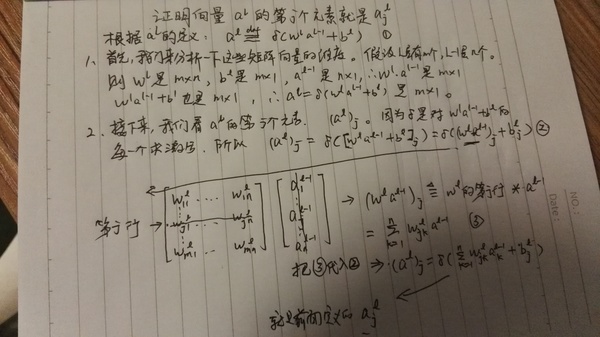 证明向量 a^l 的第j个元素就是 a_j^l
根据 a^l 的定义: a^l ≝ δ(w^l a^{l-1} + b^l) ①
1、首先,我们来分析一下这些矩阵向量的维度。假设 L层有m个, L-1层n个。
则 w^l 是 m×n , b^l 是 m×1 , a^{l-1} 是 n×1 , ∴ w^l·a^{l-1} 是 m×1
w^l a^{l-1} + b^l 也是 m×1 , ∴ a^l = δ(w^l a^{l-1} + b^l) 是 m×1 。
2、接下来,我们看 a^l 的第j个元素. (a^l)_j 。因为 δ 是对 w^l a^{l-1} + b^l 的
每一个求激活. 所以 (a^l)_j = δ([w^l a^{l-1} + b^l]_j) = δ((w^l a^{l-1})_j + b_j^l) ②
w_{11}^l ... w_{1n}^l a_1^{l-1}
第j行 → w_{j1}^l ... w_{jn}^l a_j^{l-1} → (w^l a^{l-1})_j ≜ w^l 的第j行 * a^{l-1}
w_{m1}^l ... w_{mn}^l a_n^{l-1} = ∑_{k=1}^n w_{jk}^l a_k^{l-1} ③
把③代入② → (a^l)_j = δ(∑_{k=1}^n w_{jk}^l a_k^{l-1} + b_j^l)
就是前面定义的 a_j^l
NO.:
Date: